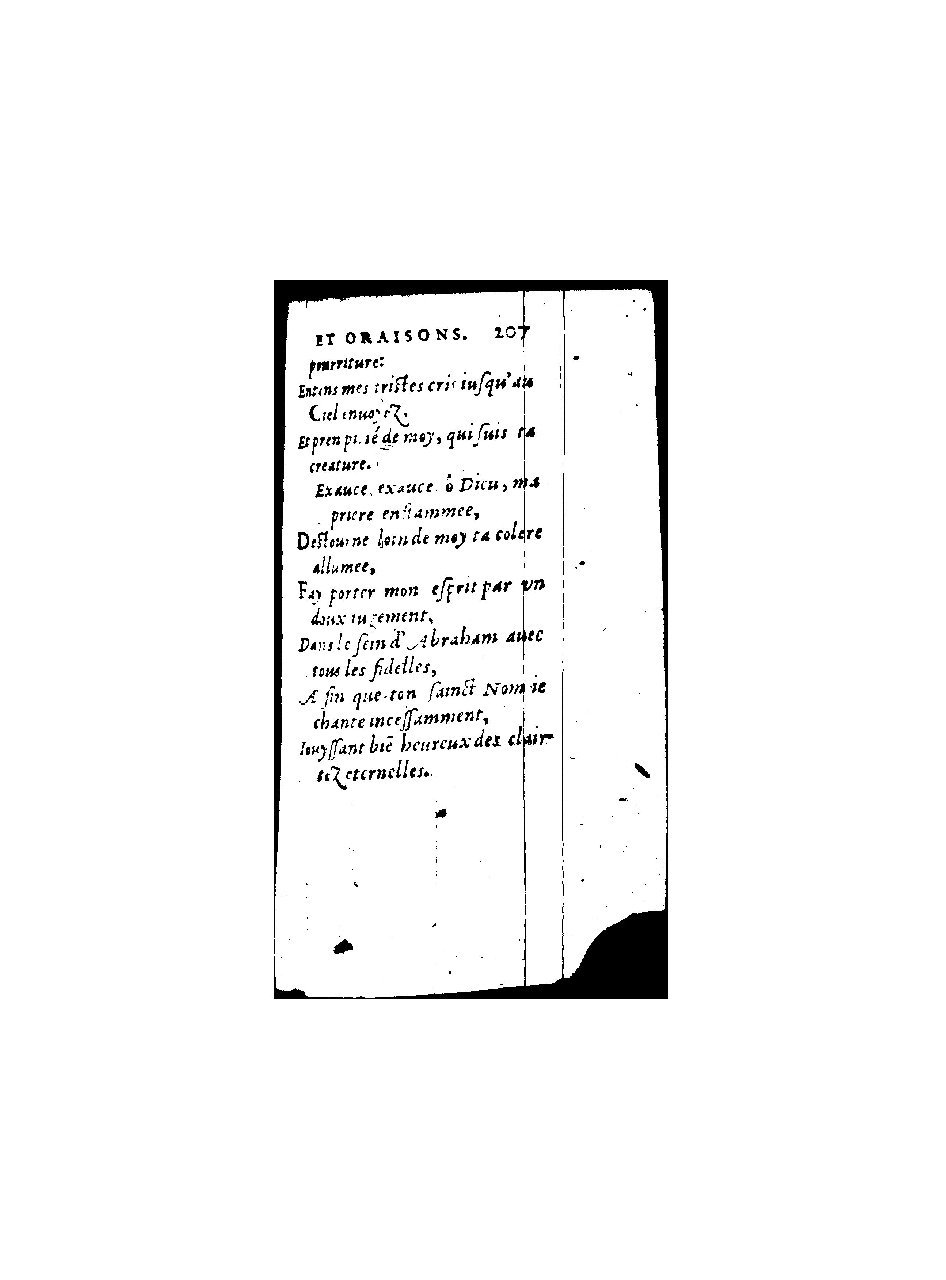 ET ORAISONS. 207
pourriture:
Entens mes tristes cris iusqu'au
Ciel enuoyez,
Et pren pitié de moy, qui suis ta
creature.
Exauce, exauce ô Dieu, ma
priere enflammee,
Destourne loin de moy ta colere
allumee,
Fay porter mon esprit par vn
doux iugement,
Dans le sein d'Abraham auec
tous les fidelles,
A fin que ton sainct Nom ie
chante incessamment,
Iouyssant biē heureux des clair-
tez eternelles.